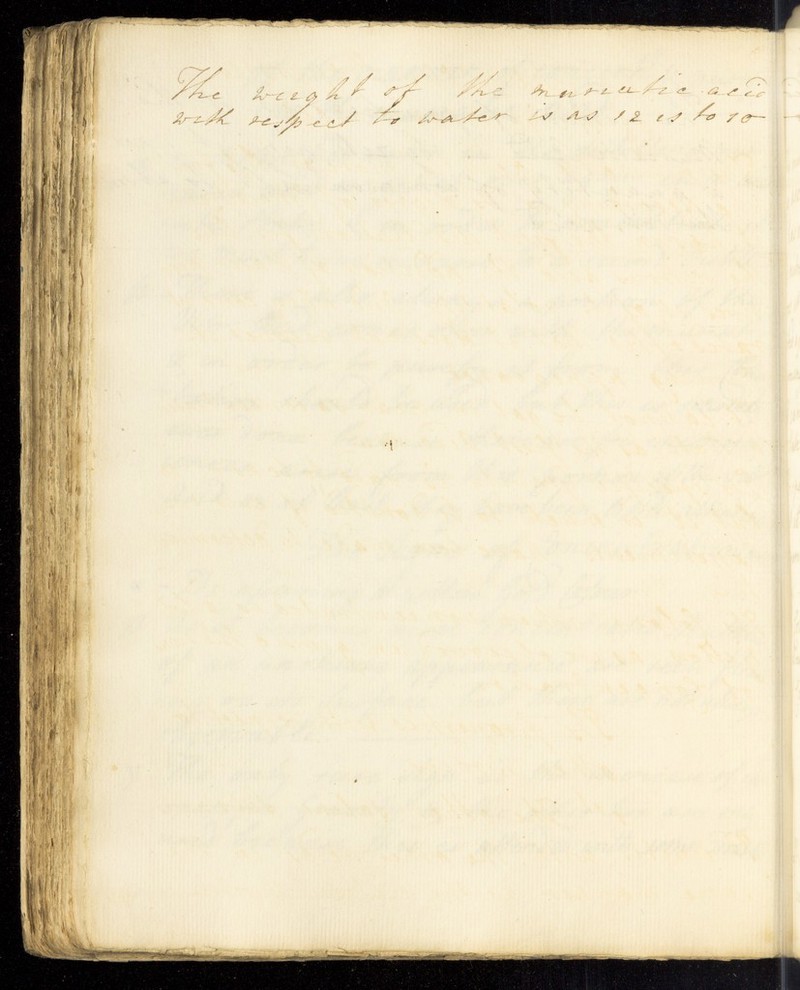 The weight of the muriatic acid
with respect to water is as 12 is to 10